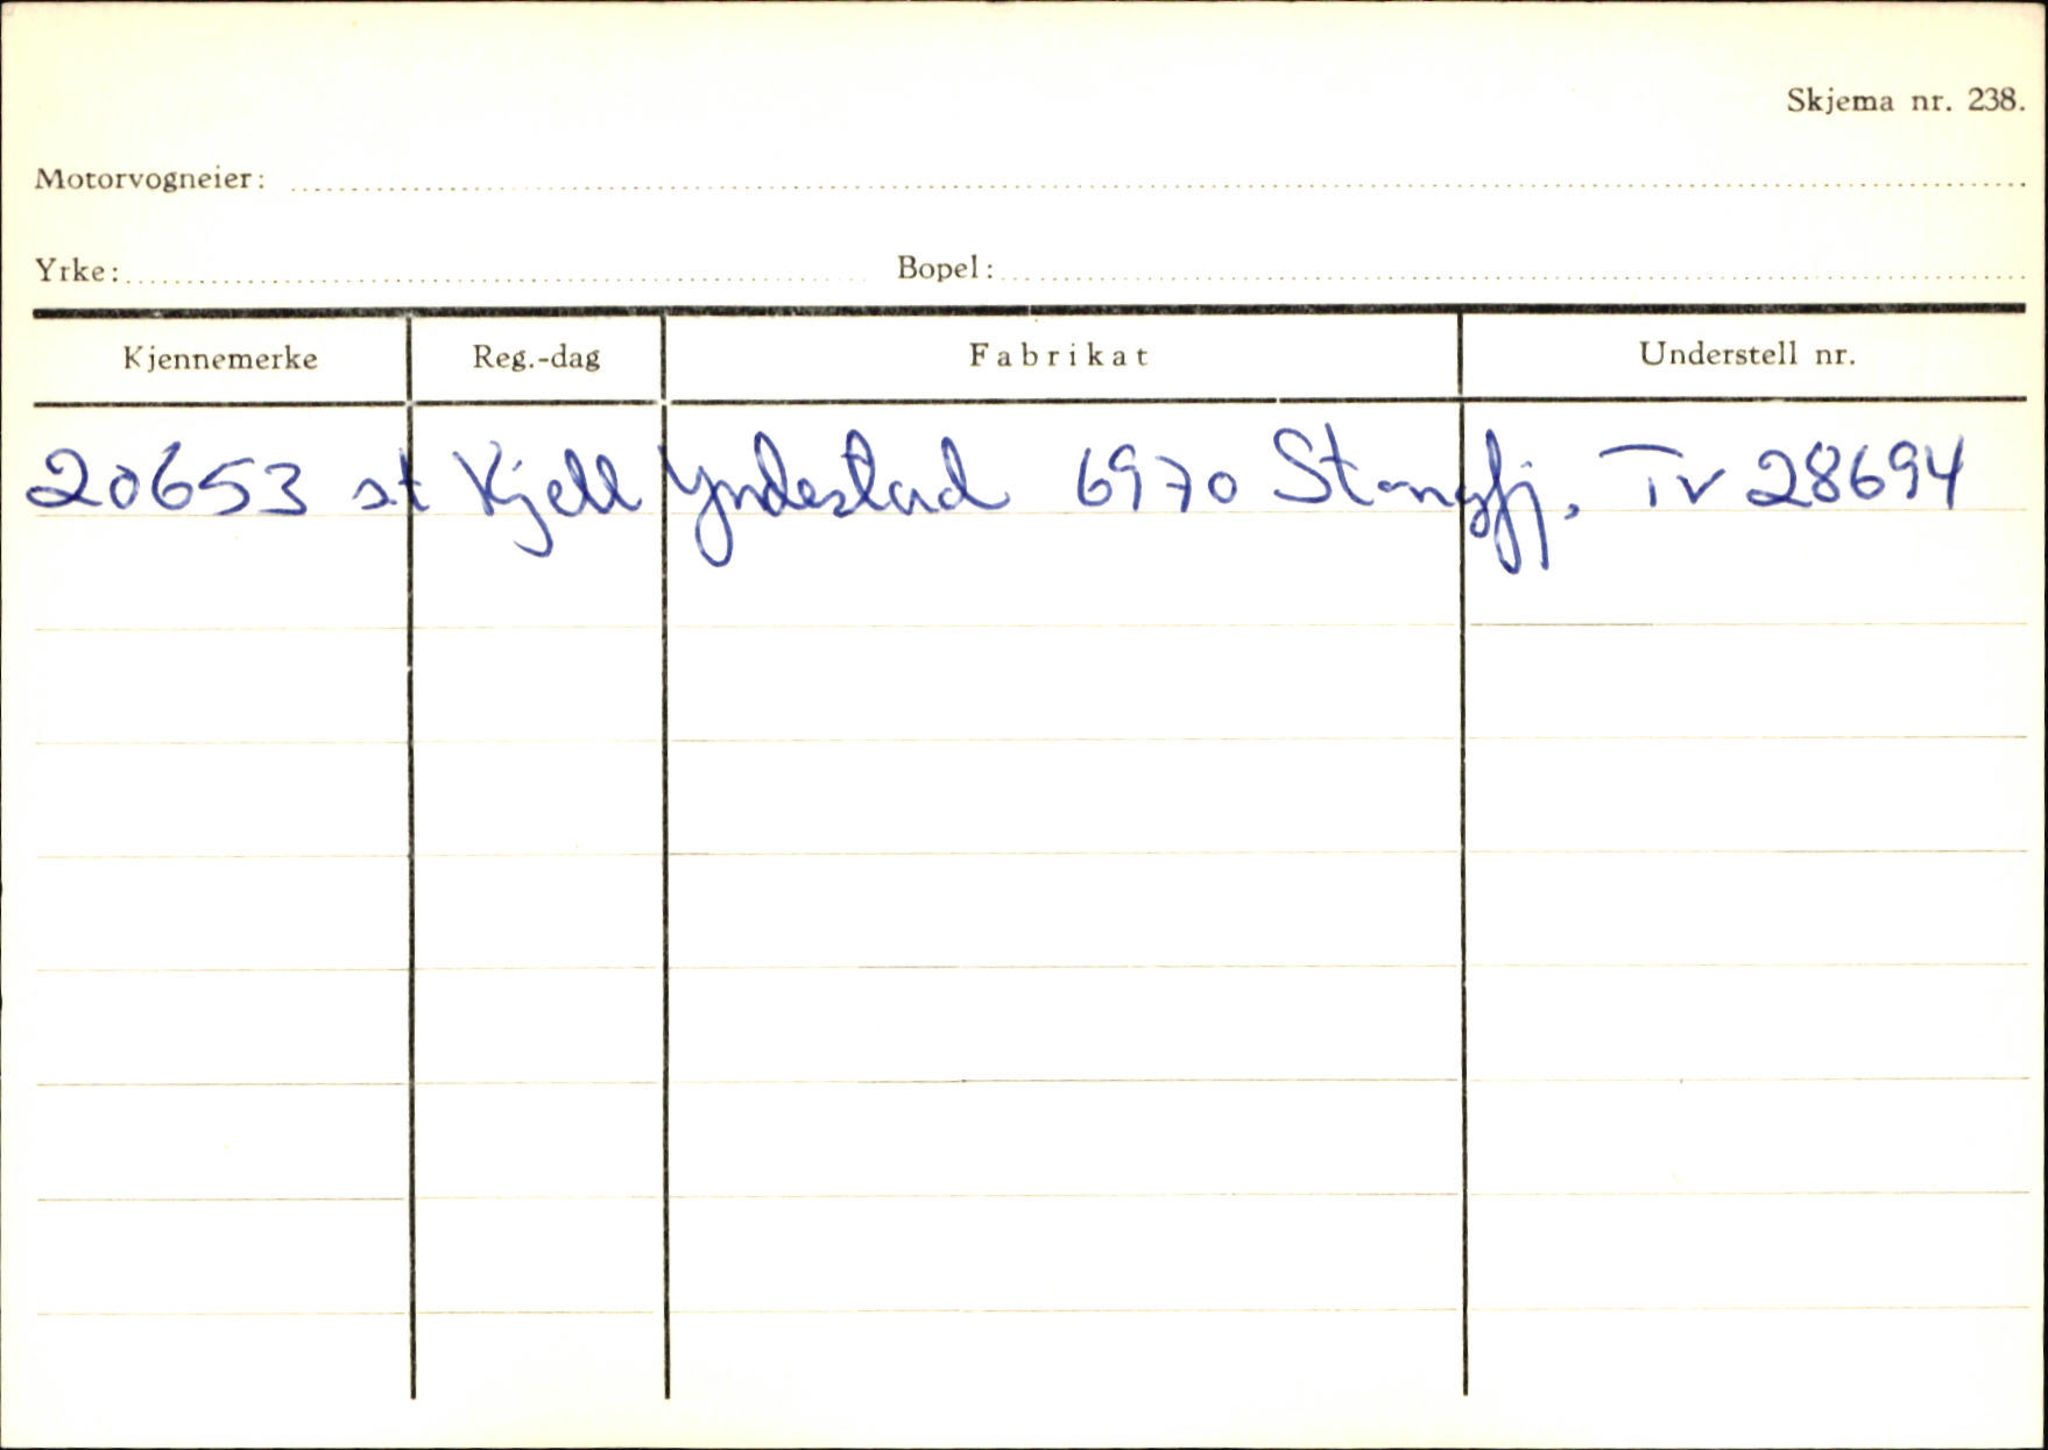 Skjema nr. 238.
Motorvogneier:
Yrke: Bopel:
Kjennemerke Reg.-dag Fabrikat Understell nr.
20653 st Kjell Yndestad 6970 Stongfj. Tv 28694